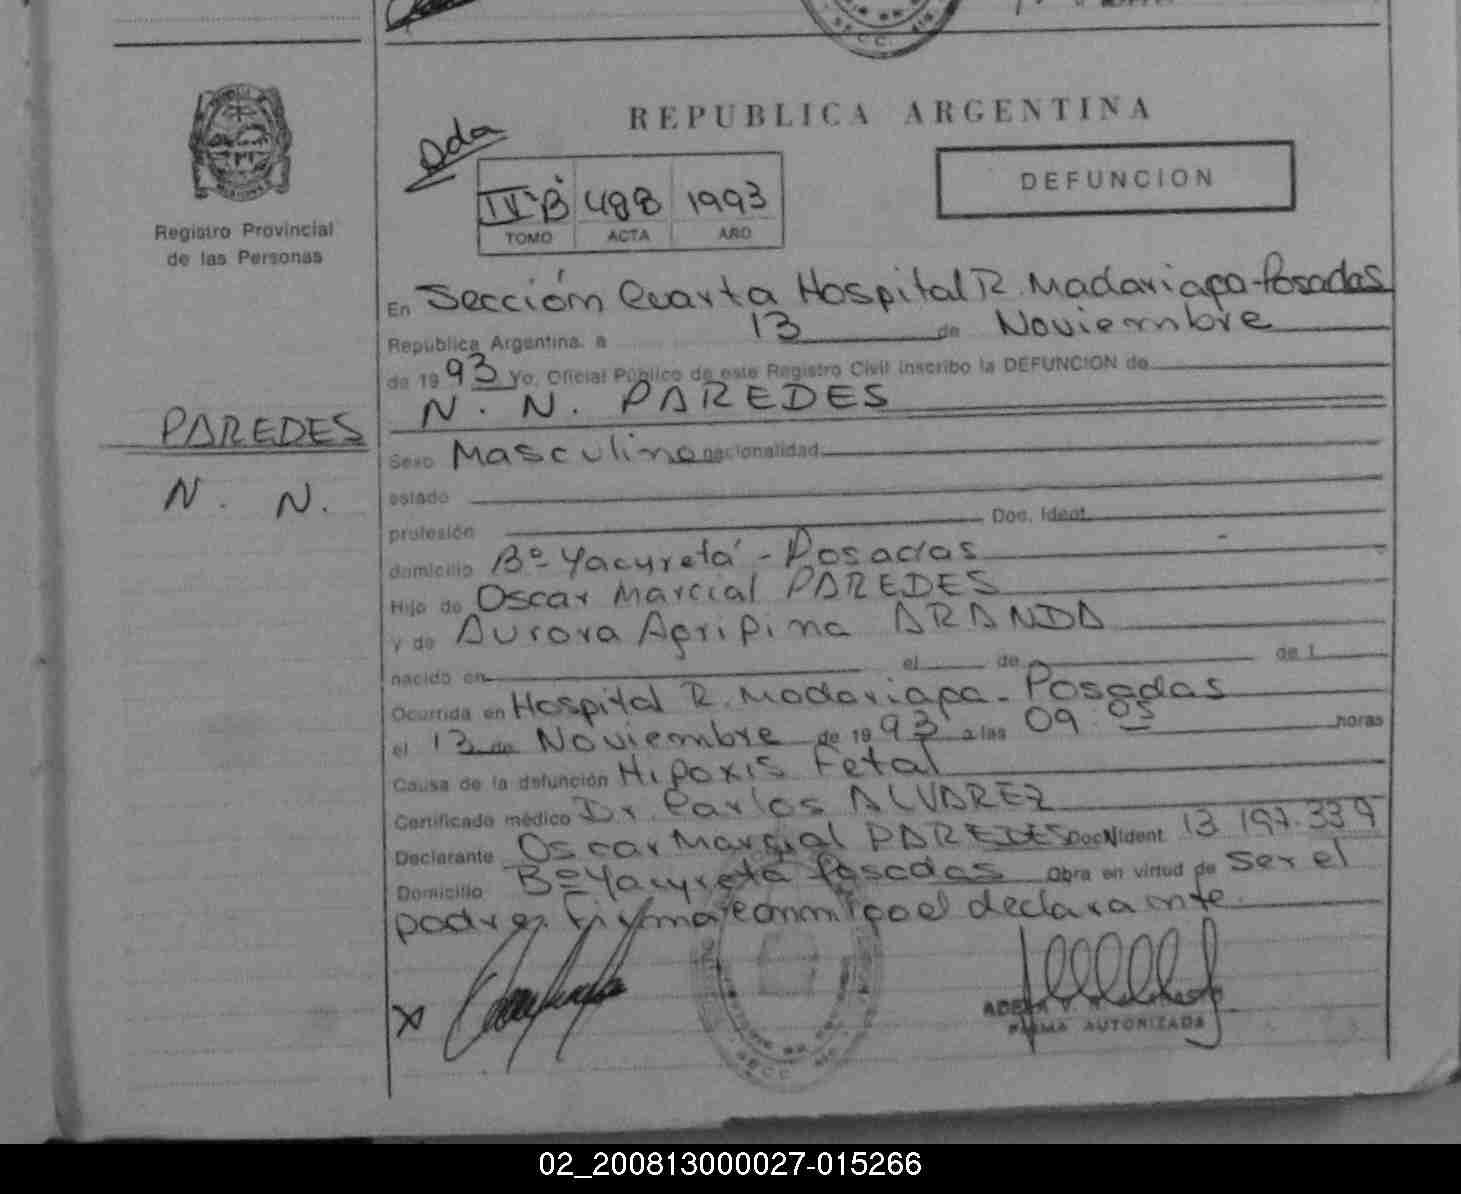 REPUBLICA ARGENTINA
Registro Provincial
de las Personas
IV·B 488 1993
TOMO ACTA AÑO
DEFUNCION
En Sección Cuarta Hospital R. Madariaga-Posadas
República Argentina, a 13 de Noviembre
de 1993 Yo, Oficial Público de este Registro Civil inscribo la DEFUNCION de
N. N. PAREDES
PAREDES
N. N.
Sexo Masculino nacionalidad
estado
profesión Doc. Ident.
domicilio Bº Yacyretá - Posadas
Hijo de Oscar Marcial PAREDES
y de Aurora Agripina ARANDA
nacido en el de de 1
Ocurrida en Hospital R. Madariaga - Posadas
el 13 de Noviembre de 1993 a las 09.05 horas
Causa de la defunción Hipoxis Fetal
Certificado médico Dr. Carlos ALVAREZ
Declarante Oscar Marcial PAREDES Doc. Ident. 13.197.339
Domicilio Bº Yacyretá Posadas Obra en virtud de ser el
padre. Firma conmigo el declarante.
X
FIRMA AUTORIZADA
02_200813000027-015266